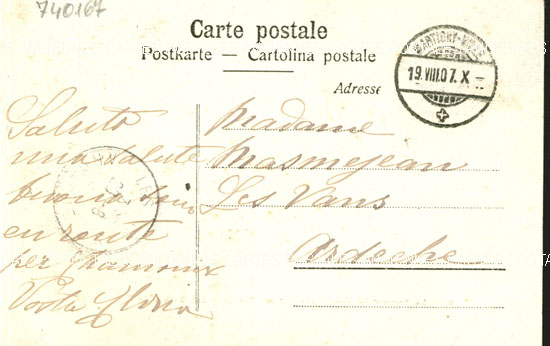 740167
Carte postale
Postkarte — Cartolina postale
Adresse
19.VIII.07.X
Saluto
una salute
buona
en route
per Chamonix
Vosta
Madame
Masmejean
Les Vans
Ardèche